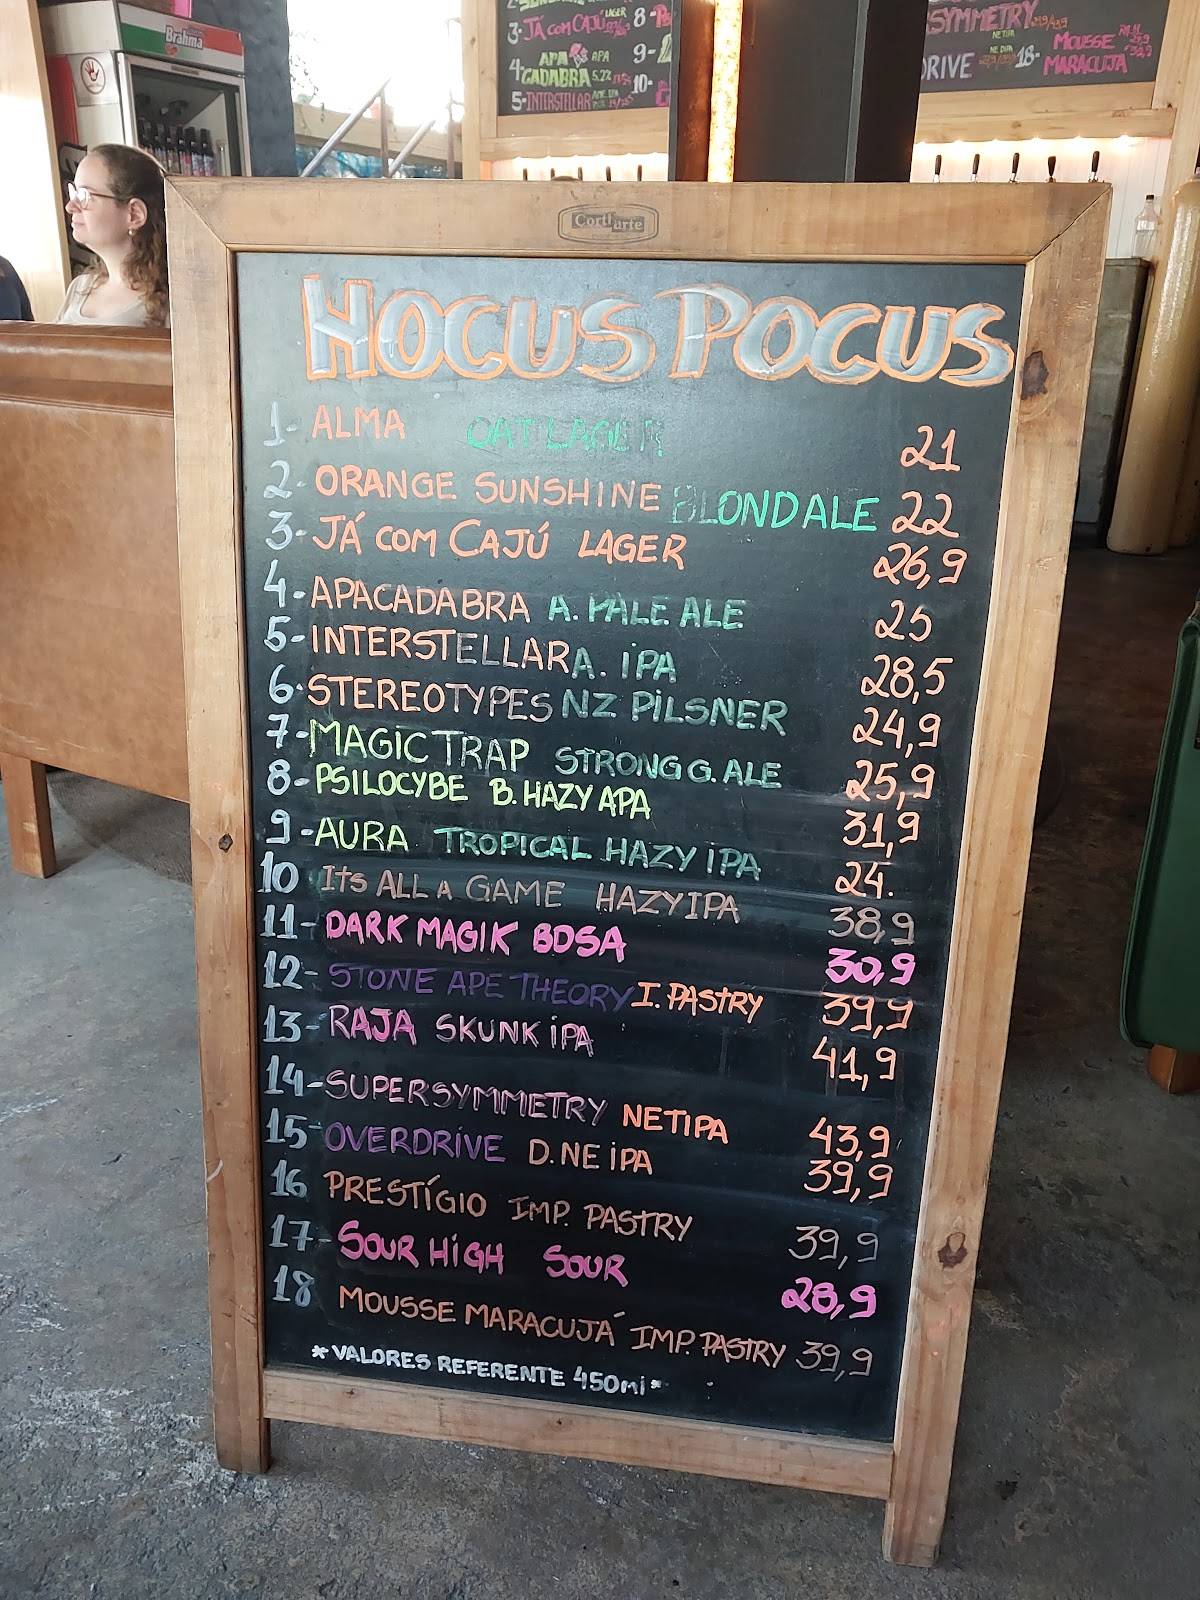 Brahma
3-JÁ COM CAJÚ LAGER 8-
APA APA 9-
4-CADABRA 5.2% 10-
5-INTERSTELLAR
SYMMETRY
NETIPA
DRIVE NE DIPA 18- MOUSSE
MARACUJA
Cort! arte
HOCUS POCUS
1- ALMA OAT LAGER 21
2- ORANGE SUNSHINE BLONDALE 22
3- JÁ COM CAJÚ LAGER 26,9
4- APACADABRA A. PALE ALE 25
5- INTERSTELLAR A. IPA 28,5
6- STEREOTYPES NZ PILSNER 24,9
7- MAGIC TRAP STRONG G. ALE 25,9
8- PSILOCYBE B. HAZY APA 31,9
9- AURA TROPICAL HAZY IPA 24.
10 ITS ALL A GAME HAZY IPA 38,9
11- DARK MAGIK BDSA 30,9
12- STONE APE THEORY I. PASTRY 39,9
13- RAJA SKUNK IPA 41,9
14- SUPERSYMMETRY NETIPA 43,9
15- OVERDRIVE D. NE IPA 39,9
16 PRESTÍGIO IMP. PASTRY 39,9
17- SOUR HIGH SOUR 28,9
18 MOUSSE MARACUJÁ IMP. PASTRY 39,9
* VALORES REFERENTE 450ml *